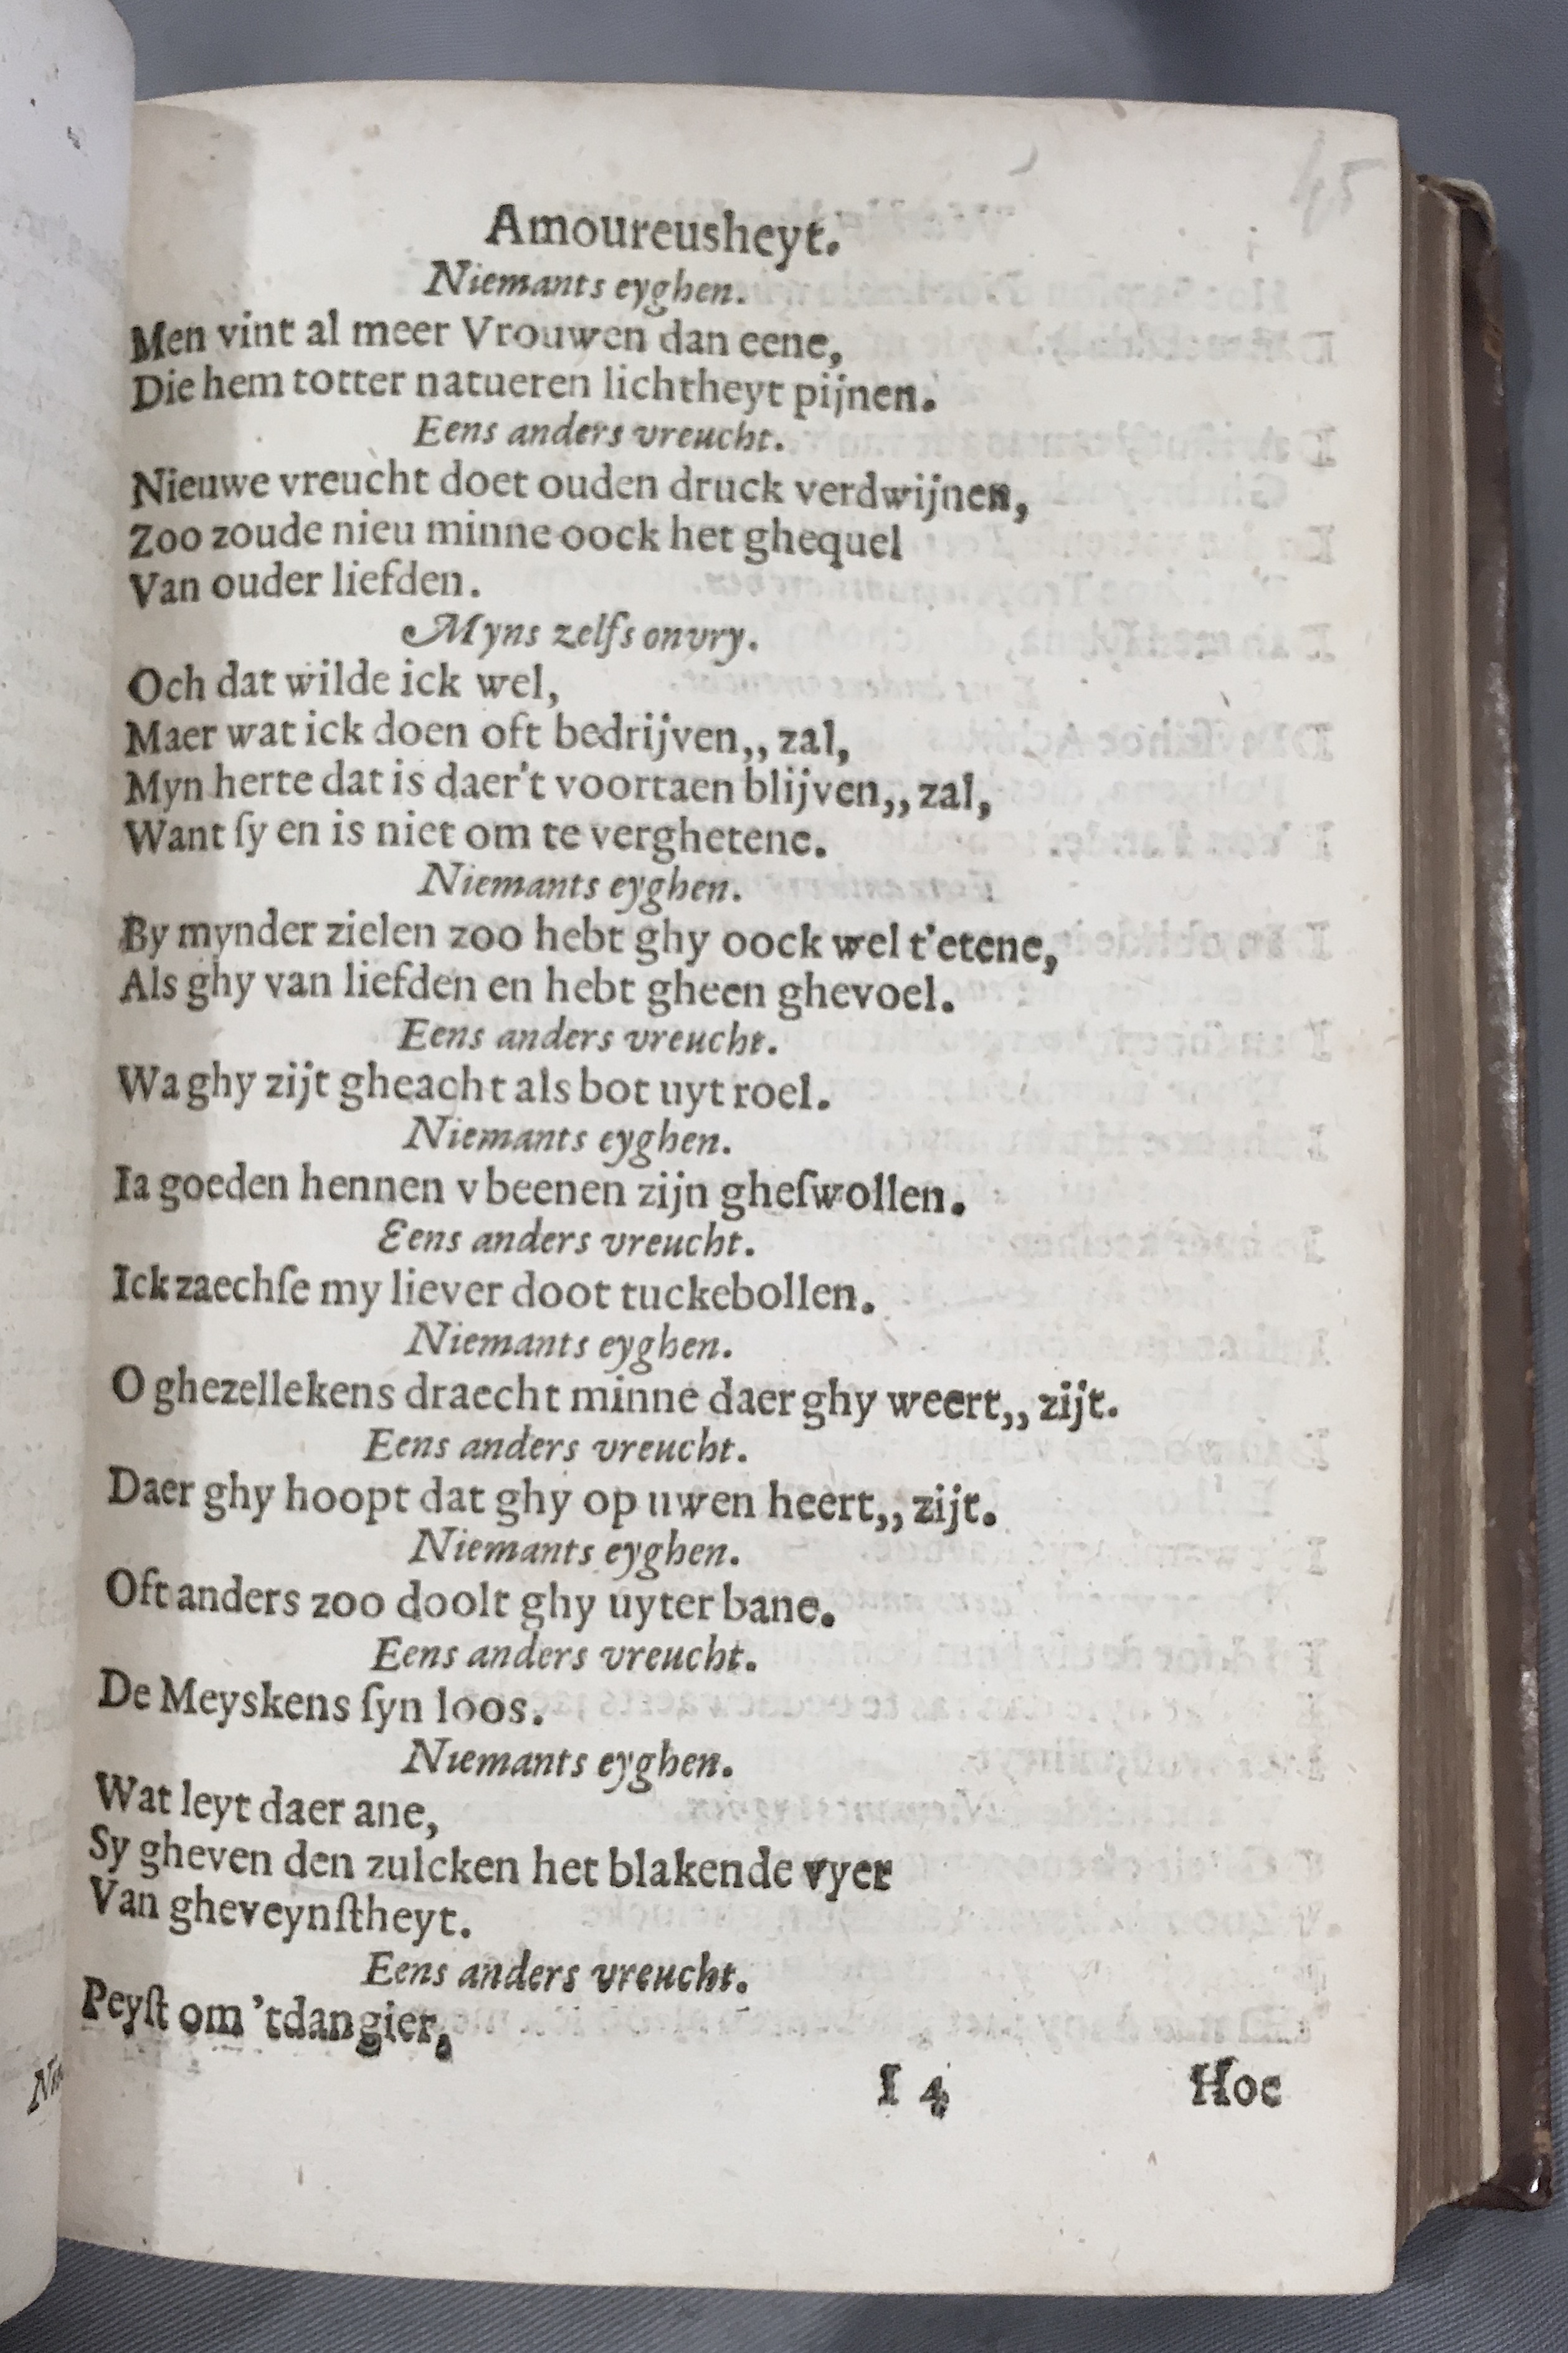 45
Amoureusheyt.
Niemants eyghen.
Men vint al meer Vrouwen dan eene,
Die hem totter natueren lichtheyt pijnen.
Eens anders vreucht.
Nieuwe vreucht doet ouden druck verdwijnen,
Zoo zoude nieu minne oock het ghequel
Van ouder liefden.
Myns zelfs onvry.
Och dat wilde ick wel,
Maer wat ick doen oft bedrijven,, zal,
Myn herte dat is daer't voortaen blijven,, zal,
Want ſy en is niet om te verghetene.
Niemants eyghen.
By mynder zielen zoo hebt ghy oock wel t'etene,
Als ghy van liefden en hebt gheen ghevoel.
Eens anders vreucht.
Wa ghy zijt gheacht als bot uyt roel.
Niemants eyghen.
Ia goeden hennen v beenen zijn gheſwollen.
Eens anders vreucht.
Ick zaechſe my liever doot tuckebollen.
Niemants eyghen.
O ghezellekens draecht minne daer ghy weert,, zijt.
Eens anders vreucht.
Daer ghy hoopt dat ghy op uwen heert,, zijt.
Niemants eyghen.
Oft anders zoo doolt ghy uyter bane.
Eens anders vreucht.
De Meyskens ſyn loos.
Niemants eyghen.
Wat leyt daer ane,
Sy gheven den zulcken het blakende vyer
Van gheveynſtheyt.
Eens anders vreucht.
Peyſt om 'tdangier,
I 4 Hoe